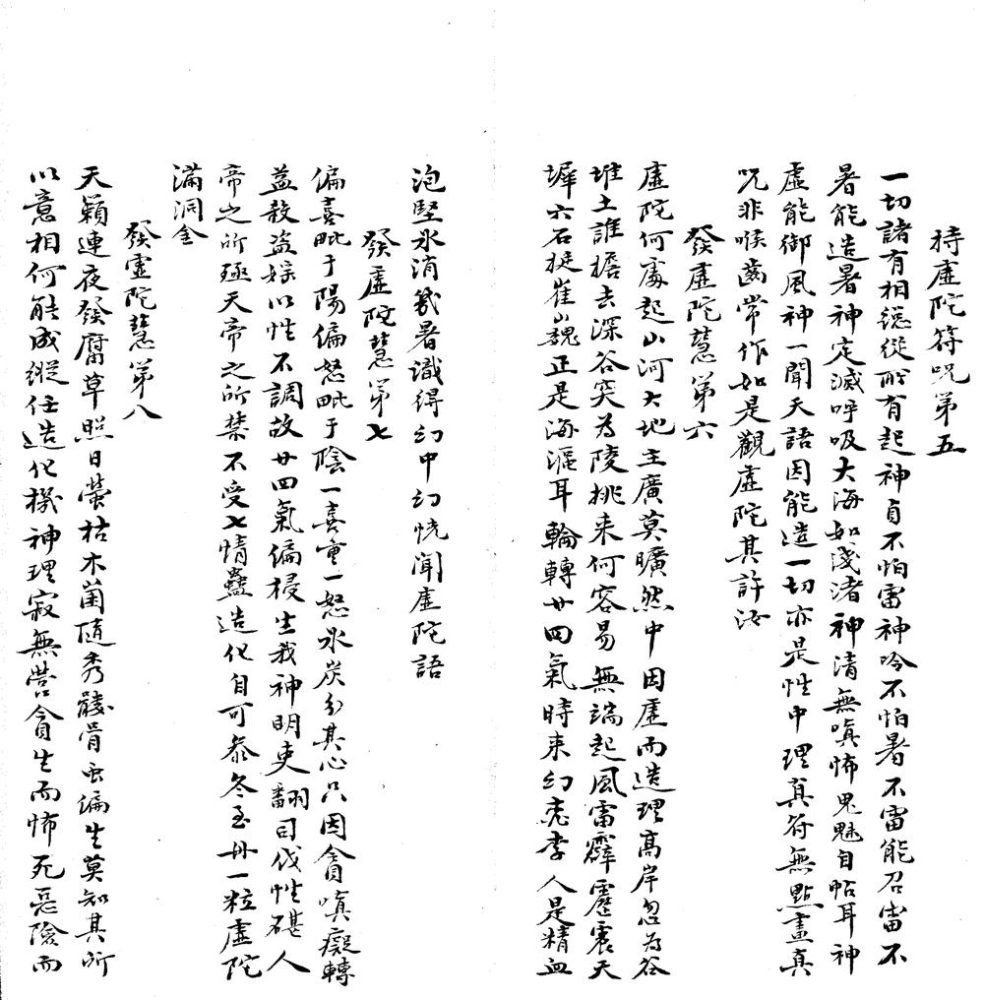 持虛陀符咒第五
一切諸有相總從所有起神貞不怕雷神吟不怕暑不雷能召雷不
暑能造暑神定滅呼吸大海如淺渚神清無嗔怖鬼魅自帖耳神
虛能御風神一聞天語因能造一切亦是性中理真符無點畫真
咒非喉齒常作如是觀虛陀其許汝
發虛陀慧第六
虛陀何處起山河大地主廣莫曠然中因虛而造理高岸忽為谷
堆土誰擔去深谷突為陵挑来何容易無端起風雷霹靂震天
墀六石挺崔巍正是海漚耳輪轉廿四氣時来幻亮李人是精血
泡堅氷消幾暑識得幻中幻恍聞虛陀語
發虛陀慧第七
偏喜毗于陽偏怒毗于陰一喜重一怒氷炭分其心只因貪嗔癡轉
益殺盗婬以性不調故廿四氣偏侵生我神明吏翻司伐性碪人
帝之所殛天帝之所禁不受七情蠱造化自可叅冬至丹一粒虛陀
滿洞金
發虛陀慧第八
天籟連夜發腐草照日螢枯木菌隨秀髊骨虫偏生莫知其所
以意相何能成縱任造化機神理寂無營貪生而怖死惡險而